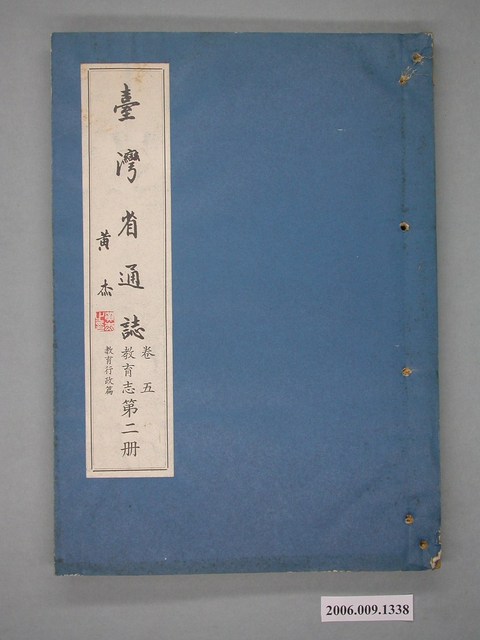 臺灣省通誌
卷五
教育志第二册
教育行政篇
黃杰
2006.009.1338